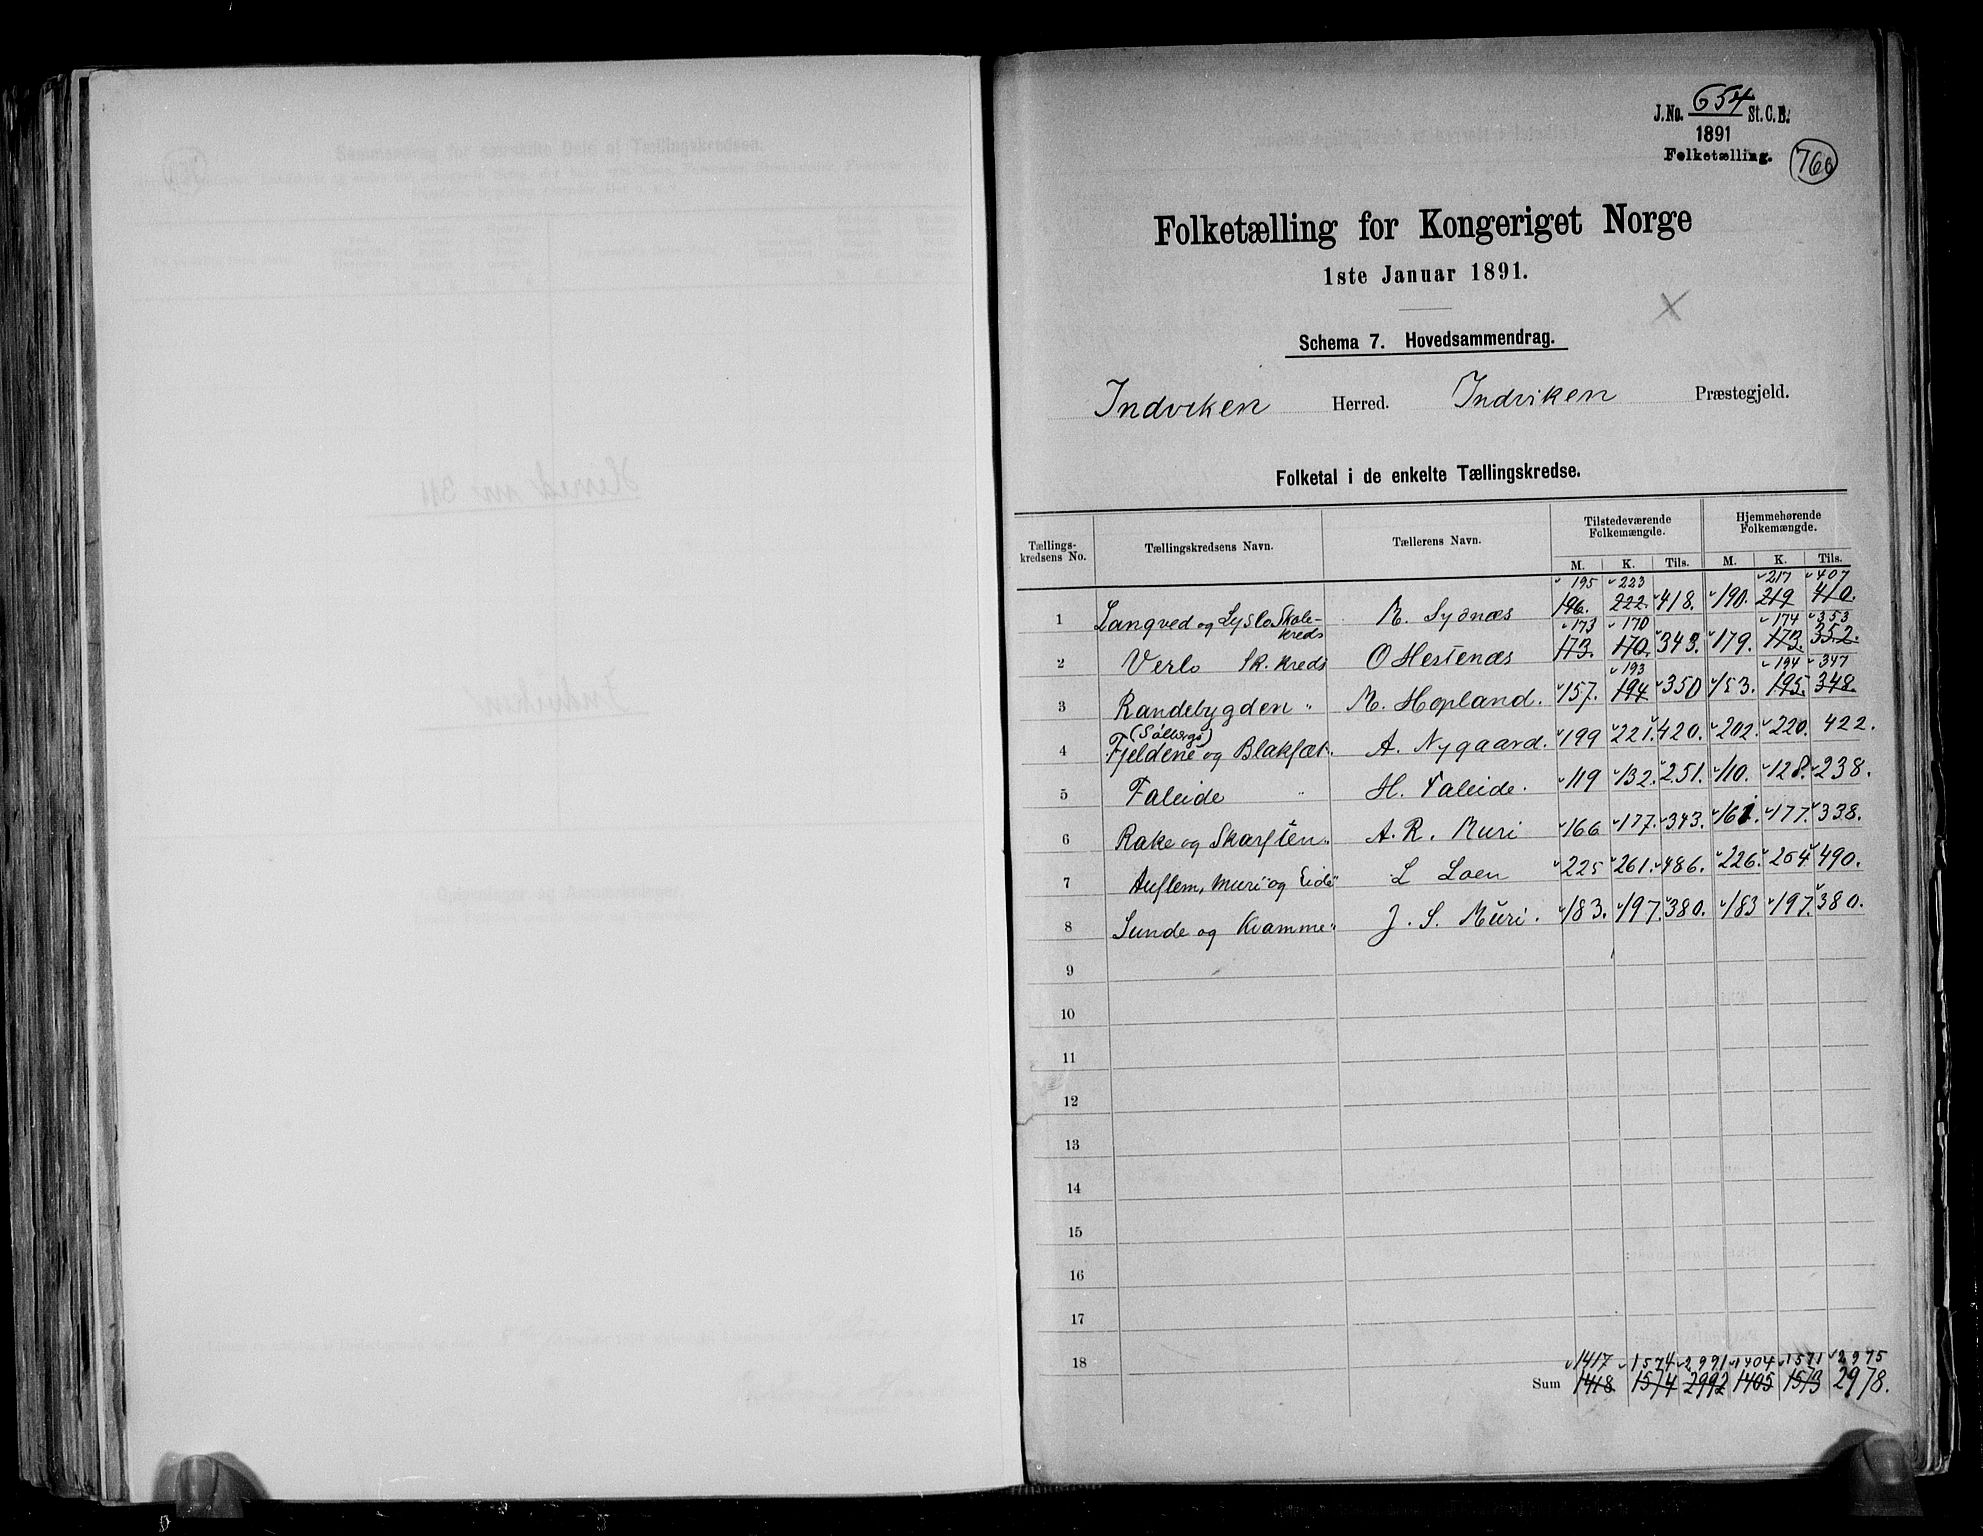 J. No. 654 St. C. B.
1891
Folketælling.
760
Folketælling for Kongeriget Norge
1ste Januar 1891.
Schema 7. Hovedsammendrag.
Indviken Herred. Indviken Præstegjeld.
Folketal i de enkelte Tællingskredse.
Tællings-kredsens No. Tællingskredsens Navn. Tællerens Navn. Tilstedeværende Folkemængde. Hjemmehørende Folkemængde.
M. K. Tils. M. K. Tils.
195 223 217 407
1 Langved og Lyslo Skole-kreds M. Sydnæs 196. 222. 418. 190. 219 410.
173 170 174 353
2 Verlo Sk. kreds O Hestenæs 173. 170. 343. 179. 173. 352.
193 194 347
3 Randebygden " M. Hopland. 157. 194 350 153. 195. 348.
(Solbergs)
4 Fjeldene og Blakset " A. Nygaard. 199 221. 420. 202. 220. 422.
5 Faleide " H. Faleide. 119 132. 251. 110. 128. 238.
6 Rake og Skarsten " A. R. Muri 166 177. 343. 161. 177. 338.
7 Auflem, Muri og Eide " L Loen 225 261. 486. 226. 264. 490.
8 Sunde og Kvamme " J. S. Muri. 183. 197. 380. 183 197. 380.
9
10
11
12
13
14
15
16
17
18
1417 1574 2991 1404 1571 2975
Sum 1418 1574 2992 1405 1573 2978.